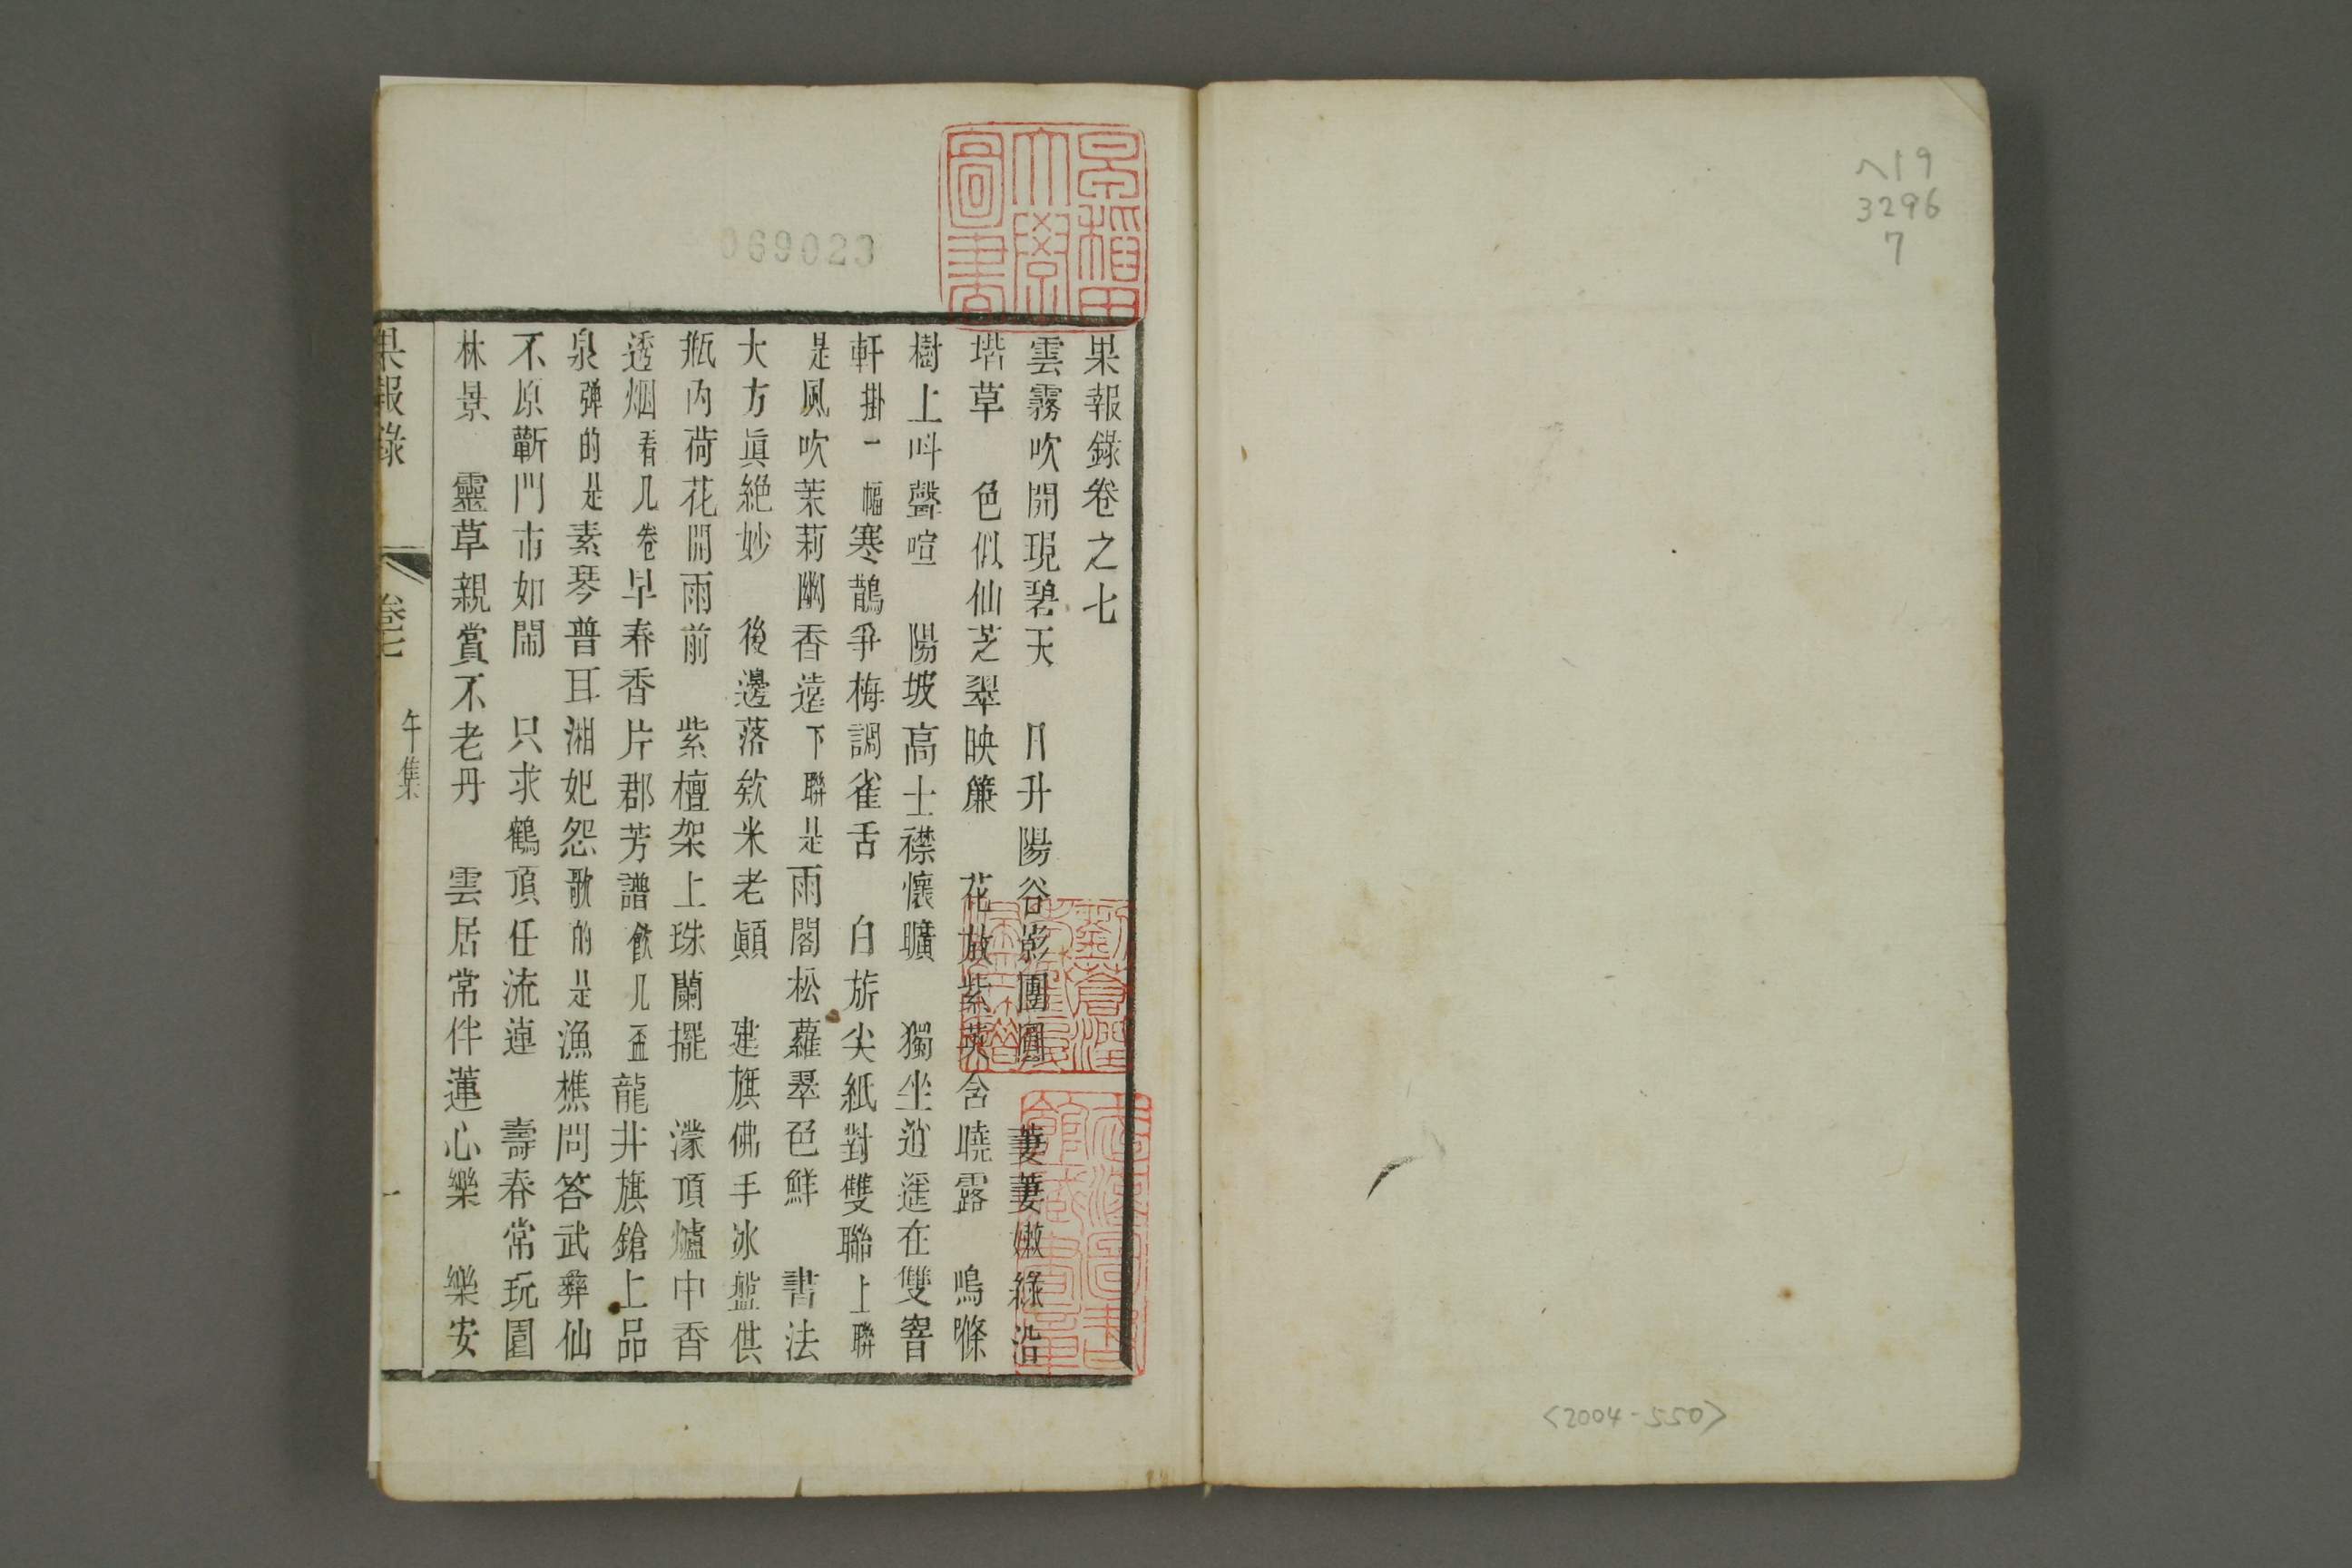 ヘ19
3296
7
<2004-550>
069023
早稲田
大學
圖書
果報錄卷之七
雲霧吹開現碧天　月升陽谷影團圓　萋萋嫩綠沿
堦草　色似仙芝翠映簾　花放紫英含曉露　鳴條
樹上呌聲喧　陽坡高士襟懷曠　獨坐逍遥在雙窨
軒掛一幅寒鵲爭梅調雀舌　白旂尖紙對雙聯上聯
是風吹茉莉幽香遠下聯是雨閣松蘿翠色鮮　書法
大方眞絶妙　後邊落欵米老顚　建旗佛手冰盤供
瓶内荷花開雨前　紫檀架上珠蘭擺　濛頂爐中香
透烟看几卷早春香片郡芳譜飲几盃龍井旗鎗上品
泉弹的是素琴普耳湘妃怨歌的是漁樵問答武彜仙
不原蘄門市如閙　只求鶴頂任流蓮　壽春常玩園
林景　靈草親賞不老丹　雲居常伴蓮心樂　樂安
果報錄　卷七　午集　一